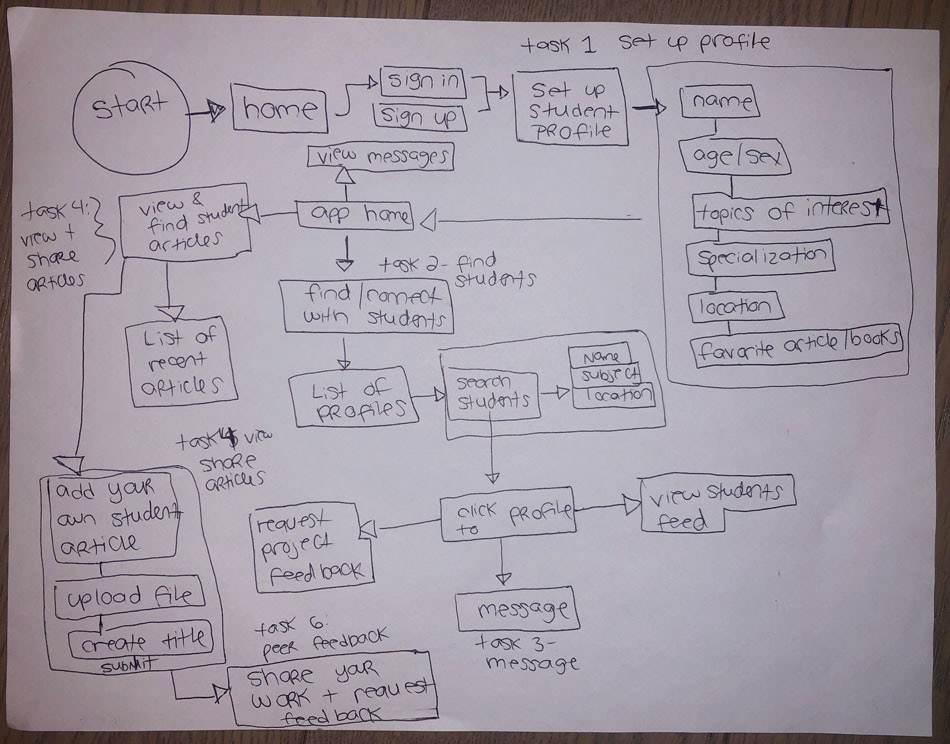 task 1 set up profile
START
home
sign in
sign up
set up
student
PROFILE
name
age/sex
topics of interest
specialization
location
favorite article/books
view messages
app home
task 4:
view +
share
articles
view &
find student
articles
List of
recent
articles
task 2- find
students
find/connect
with students
List of
PROFILES
search
students
Name
subject
location
task 4 view
share
articles
add your
own student
article
upload file
create title
submit
click profile
to
view students
feed
request
project
feedback
message
task 3-
message
task 6:
peer feedback
share your
work + request
feedback